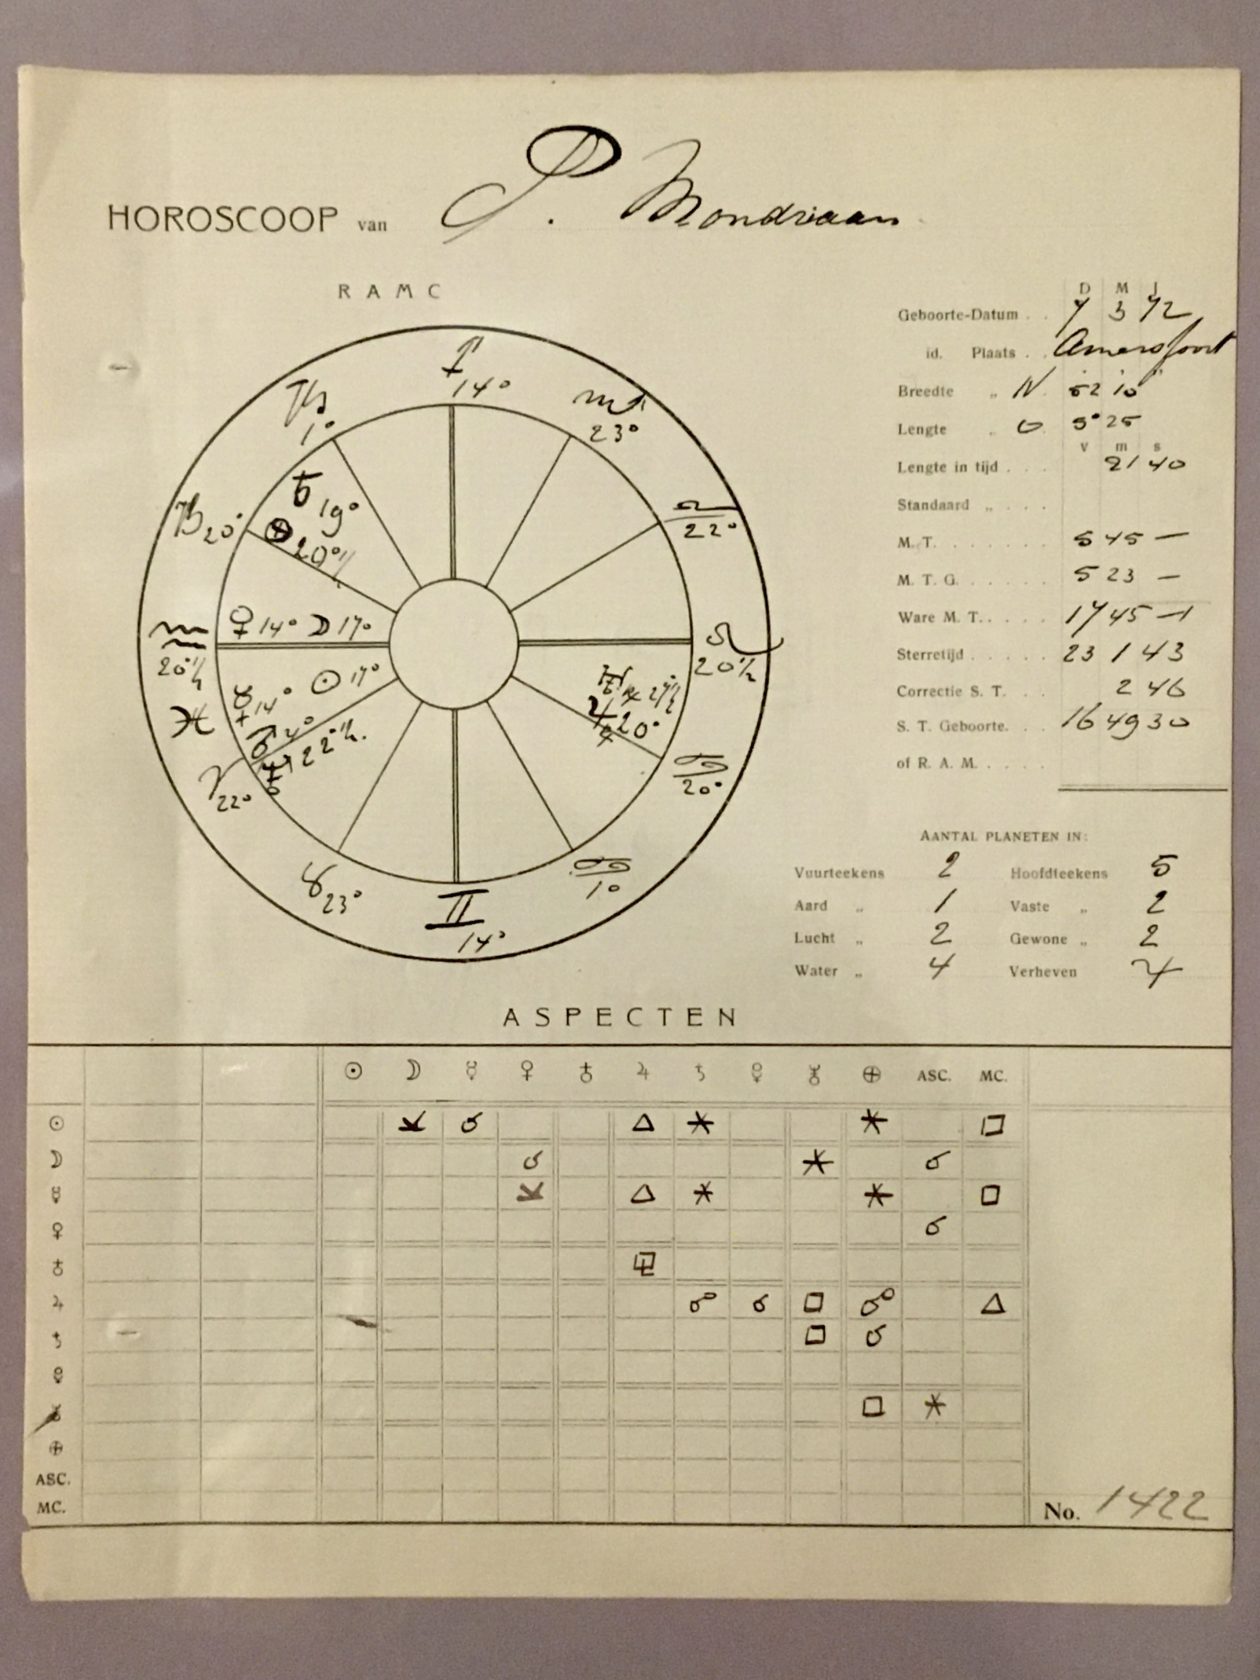 HOROSCOOP van P. Mondriaan
R A M C
D M J
Geboorte-Datum . . 7 3 72
id. Plaats . . Amersfoort
Breedte „ N 52° 10'
Lengte „ O 5° 25
v m s
Lengte in tijd . . . 21 40
Standaard „ . . . .
M. T. . . . . . . . 5 45 —
M. T. G. . . . . . 5 23 —
Ware M. T. . . . . 17 45 —
Sterretijd . . . . . 23 1 43
Correctie S. T. . . . 2 46
S. T. Geboorte. . . . 16 49 30
of R. A. M. . . . . .
♐ 14°
♏ 23°
♎ 22°
♌ 20½
♋ 20°
♋ 1°
♊ 14°
♉ 23°
♈ 22°
♓
♒ 20½
♑ 20°
♑ 1°
♄ 19°
⊕ 20½
♀ 14° ☽ 17°
☿ 14° ☉ 17°
♃ 20°
AANTAL PLANETEN IN:
Vuurteekens 2 Hoofdteekens 5
Aard „ 1 Vaste „ 2
Lucht „ 2 Gewone „ 2
Water „ 4 Verheven ♃
ASPECTEN
☉ ☽ ☿ ♀ ♁ ♃ ♄ ⊕ ASC. MC.
☉ ⚺ ☌ △ ⚹ ⚹ □
☽ ☌ ⚹ ☌
☿ ⚺ △ ⚹ ⚹ □
♀ ☌
♁ ⚼
♃ ☍ ☌ □ ☍ △
♄ □ ☌
□ ⚹
⊕
ASC.
MC.
No. 1422